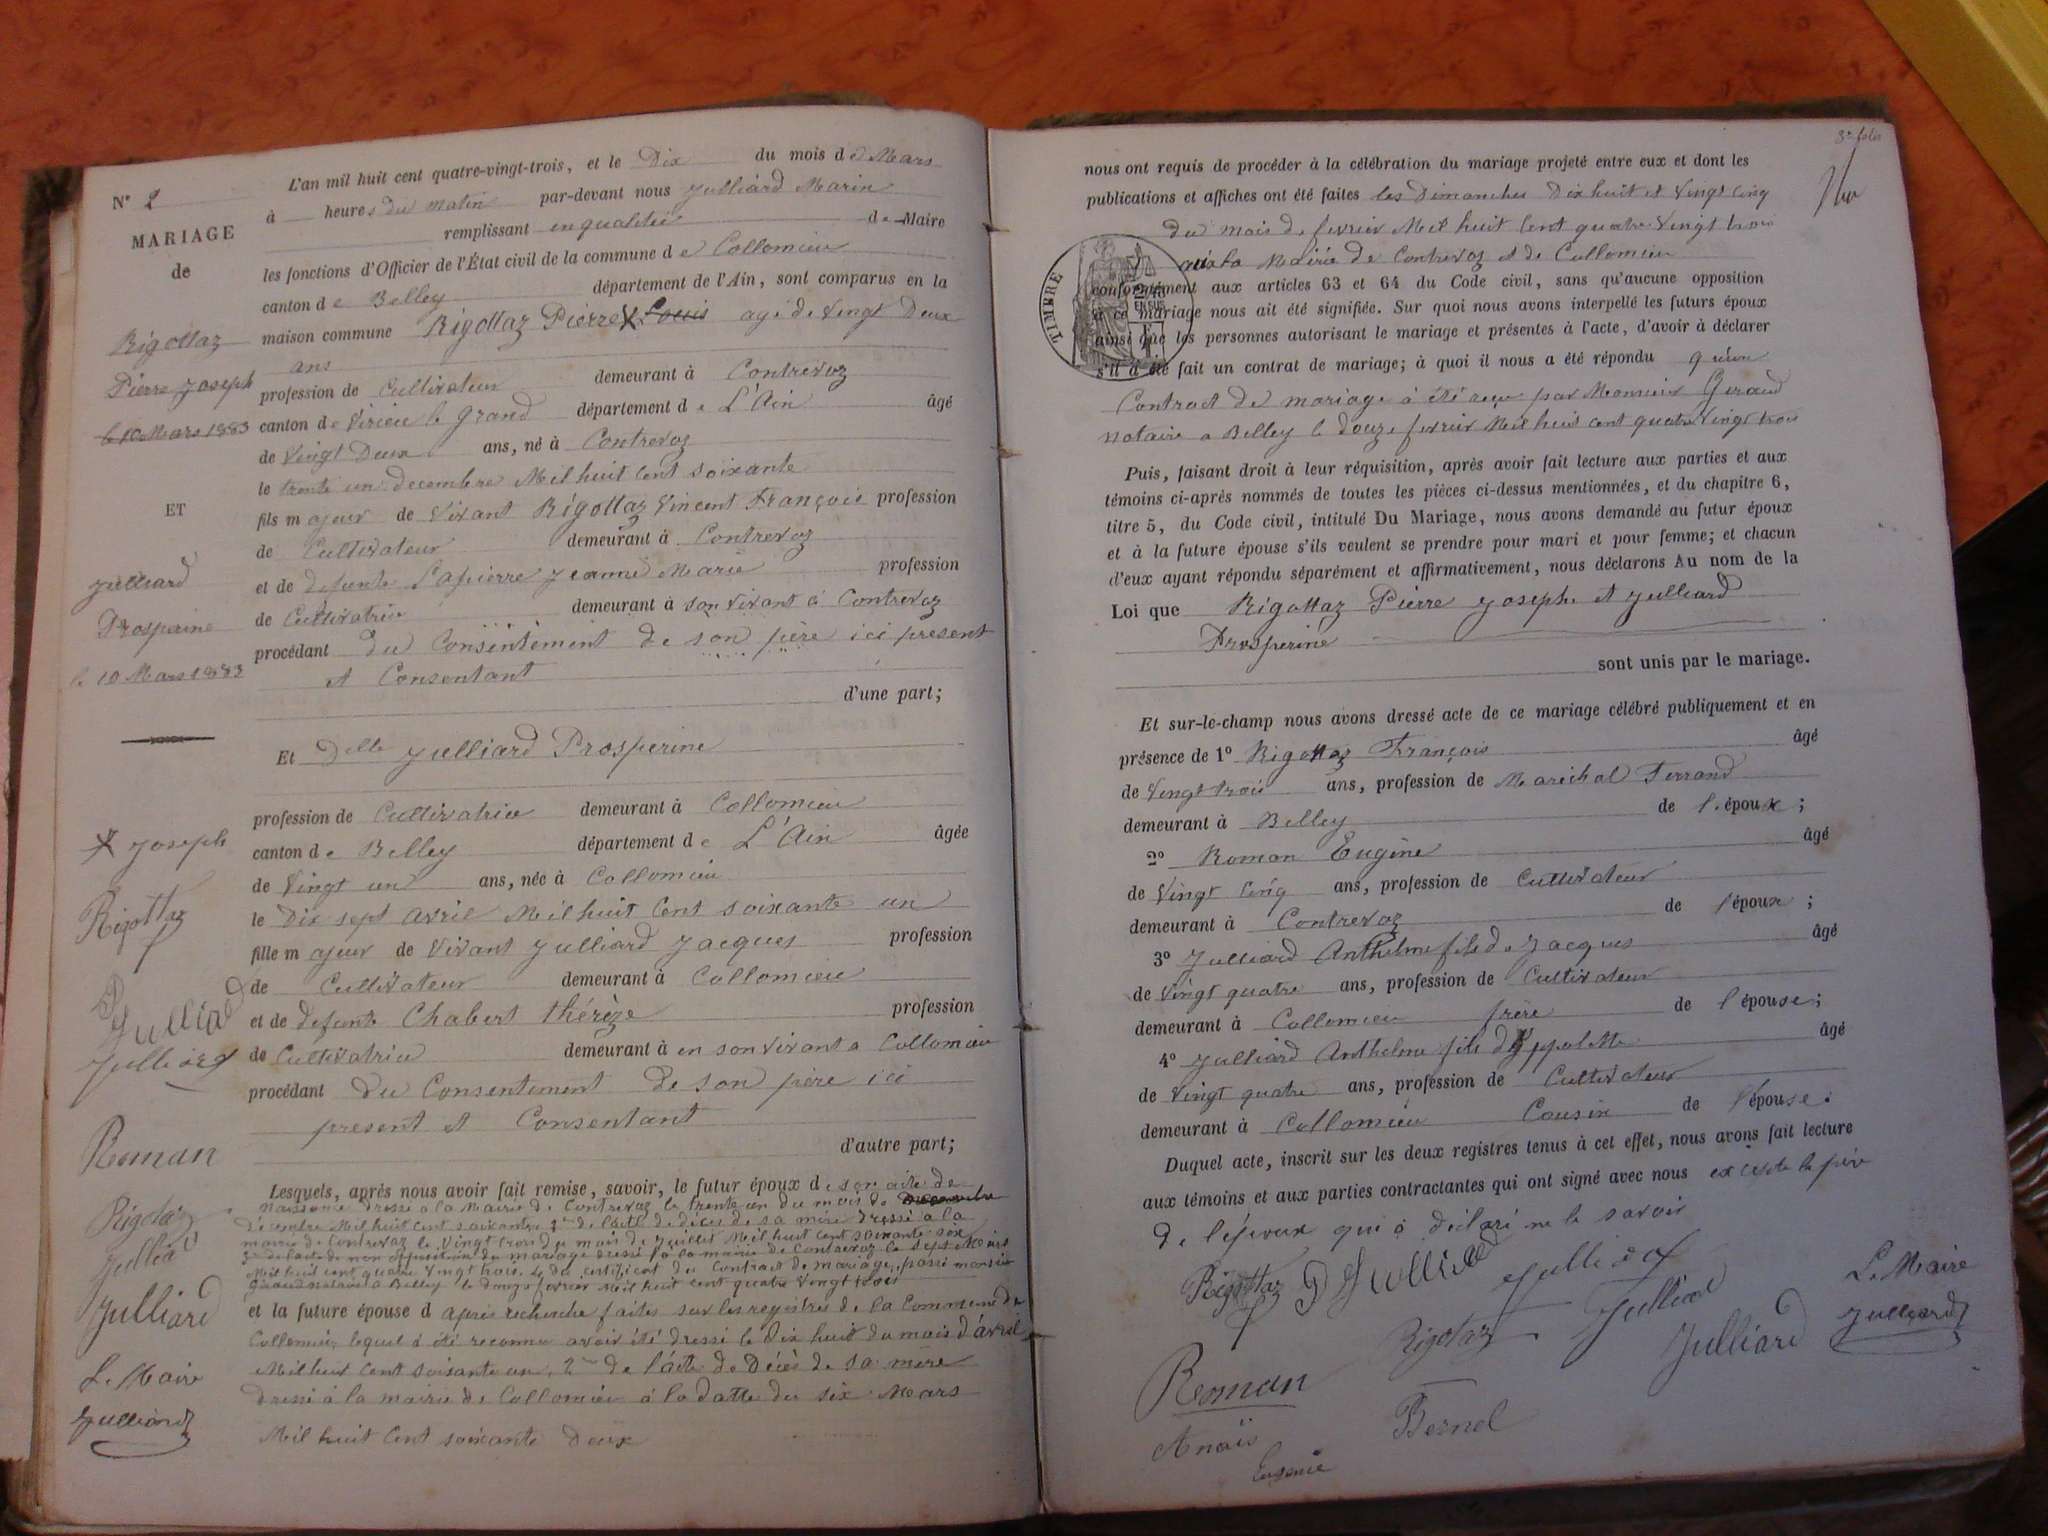 N° 2
MARIAGE
de
Rigottaz
Pierre Joseph
le 10 Mars 1883
ET
Julliard
Prosperine
le 10 Mars 1883
X Joseph
Rigottaz
P Julliard
Julliard
Roman
Rigotaz
Julliard
Julliard
Le Maire
Julliard
L'an mil huit cent quatre-vingt-trois, et le Dix du mois de Mars
à heures du matin par-devant nous Julliard Marin
remplissant en qualité de Maire
les fonctions d'Officier de l'État civil de la commune de Collomieu
canton de Belley département de l'Ain, sont comparus en la
maison commune Rigottaz Pierre X Louis agé de Vingt Deux
ans
profession de Cultivateur demeurant à Contrevoz
canton de Virieu le Grand département de L'Ain âgé
de Vingt Deux ans, né à Contrevoz
le trente un decembre Mil huit cent soixante
fils majeur de Vivant Rigottaz Vincent François profession
de Cultivateur demeurant à Contrevoz
et de defunte Lapierre Jeanne Marie profession
de Cultivatrice demeurant à son vivant à Contrevoz
procédant du Consentement de son père ici present
et Consentant
d'une part;
Et Delle Julliard Prosperine
profession de Cultivatrice demeurant à Collomieu
canton de Belley département de L'Ain âgée
de Vingt un ans, née à Collomieu
le Dix sept avril Mil huit Cent soixante un
fille majeur de Vivant Julliard Jacques profession
de Cultivateur demeurant à Collomieu
et de defunte Chabert thérèze profession
de Cultivatrice demeurant à en son vivant a Collomieu
procédant du Consentement de son père ici
present et Consentant
d'autre part;
Lesquels, après nous avoir fait remise, savoir, le futur époux de son acte de
Naissance dressé a la Mairie de Contrevoz le trente un du mois de
decembre Mil huit cent soixante, 2° de l'acte de décès de sa mère dressé a la
mairie de Contrevoz le Vingt trois du mois de Juillet Mil huit cent soixante six
3° de l'acte de non opposition du mariage dressé a la mairie de Contrevoz le sept Mars
Mil huit cent quatre Vingt trois. 4° du certificat du Contract de mariage, passé monsieur
Giraud notaire a Belley le douze fevrier Mil huit cent quatre Vingt trois
et la future épouse d apres recherche faites sur les registres de la Commune de
Collomieu, lequel a été reconnu avoir été dressé le Dix huit du mois d'avril
Mil huit cent soixante un, 2me de l'acte de Décès de sa mère
dressé à la mairie de Collomieu à la datte du six Mars
Mil huit Cent soixante Deux
3e folio
nous ont requis de procéder à la célébration du mariage projeté entre eux et dont les
publications et affiches ont été faites les Dimanches Dix huit et Vingt Cinq
du mois de fevrier Mil huit Cent quatre Vingt trois
a la Mairie de Contrevoz et de Collomieu
TIMBRE
conformément aux articles 63 et 64 du Code civil, sans qu'aucune opposition
à ce mariage nous ait été signifiée. Sur quoi nous avons interpellé les futurs époux
ainsi que les personnes autorisant le mariage et présentes à l'acte, d'avoir à déclarer
s'il a été fait un contrat de mariage; à quoi il nous a été répondu qu'un
Contract de mariage à été reçu par Monsieur Giraud
notaire a Belley le douze fevrier Mil huit cent quatre Vingt trois
Puis, faisant droit à leur réquisition, après avoir fait lecture aux parties et aux
témoins ci-après nommés de toutes les pièces ci-dessus mentionnées, et du chapitre 6,
titre 5, du Code civil, intitulé Du Mariage, nous avons demandé au futur époux
et à la future épouse s'ils veulent se prendre pour mari et pour femme; et chacun
d'eux ayant répondu séparément et affirmativement, nous déclarons Au nom de la
Loi que Rigottaz Pierre Joseph et Julliard
Prosperine
sont unis par le mariage.
Et sur-le-champ nous avons dressé acte de ce mariage célébré publiquement et en
présence de 1° Rigottaz François âgé
de Vingt trois ans, profession de Maréchal Ferrand
demeurant à Belley de l'époux;
2° Roman Eugène âgé
de Vingt Cinq ans, profession de Cultivateur
demeurant à Contrevoz de l'époux;
3° Julliard Anthelme fils de Jacques âgé
de Vingt quatre ans, profession de Cultivateur
demeurant à Collomieu frère de l'épouse;
4° Julliard Anthelme fils d'Yppolitte âgé
de Vingt quatre ans, profession de Cultivateur
demeurant à Collomieu Cousin de l'épouse.
Duquel acte, inscrit sur les deux registres tenus à cet effet, nous avons fait lecture
aux témoins et aux parties contractantes qui ont signé avec nous le père
de l'époux qui à déclaré ne le savoir
Rigottaz P Julliard Julliard
Le Maire
Rigotaz Julliard Julliard Julliard
Roman
Anaïs
Bernel
Eugenie